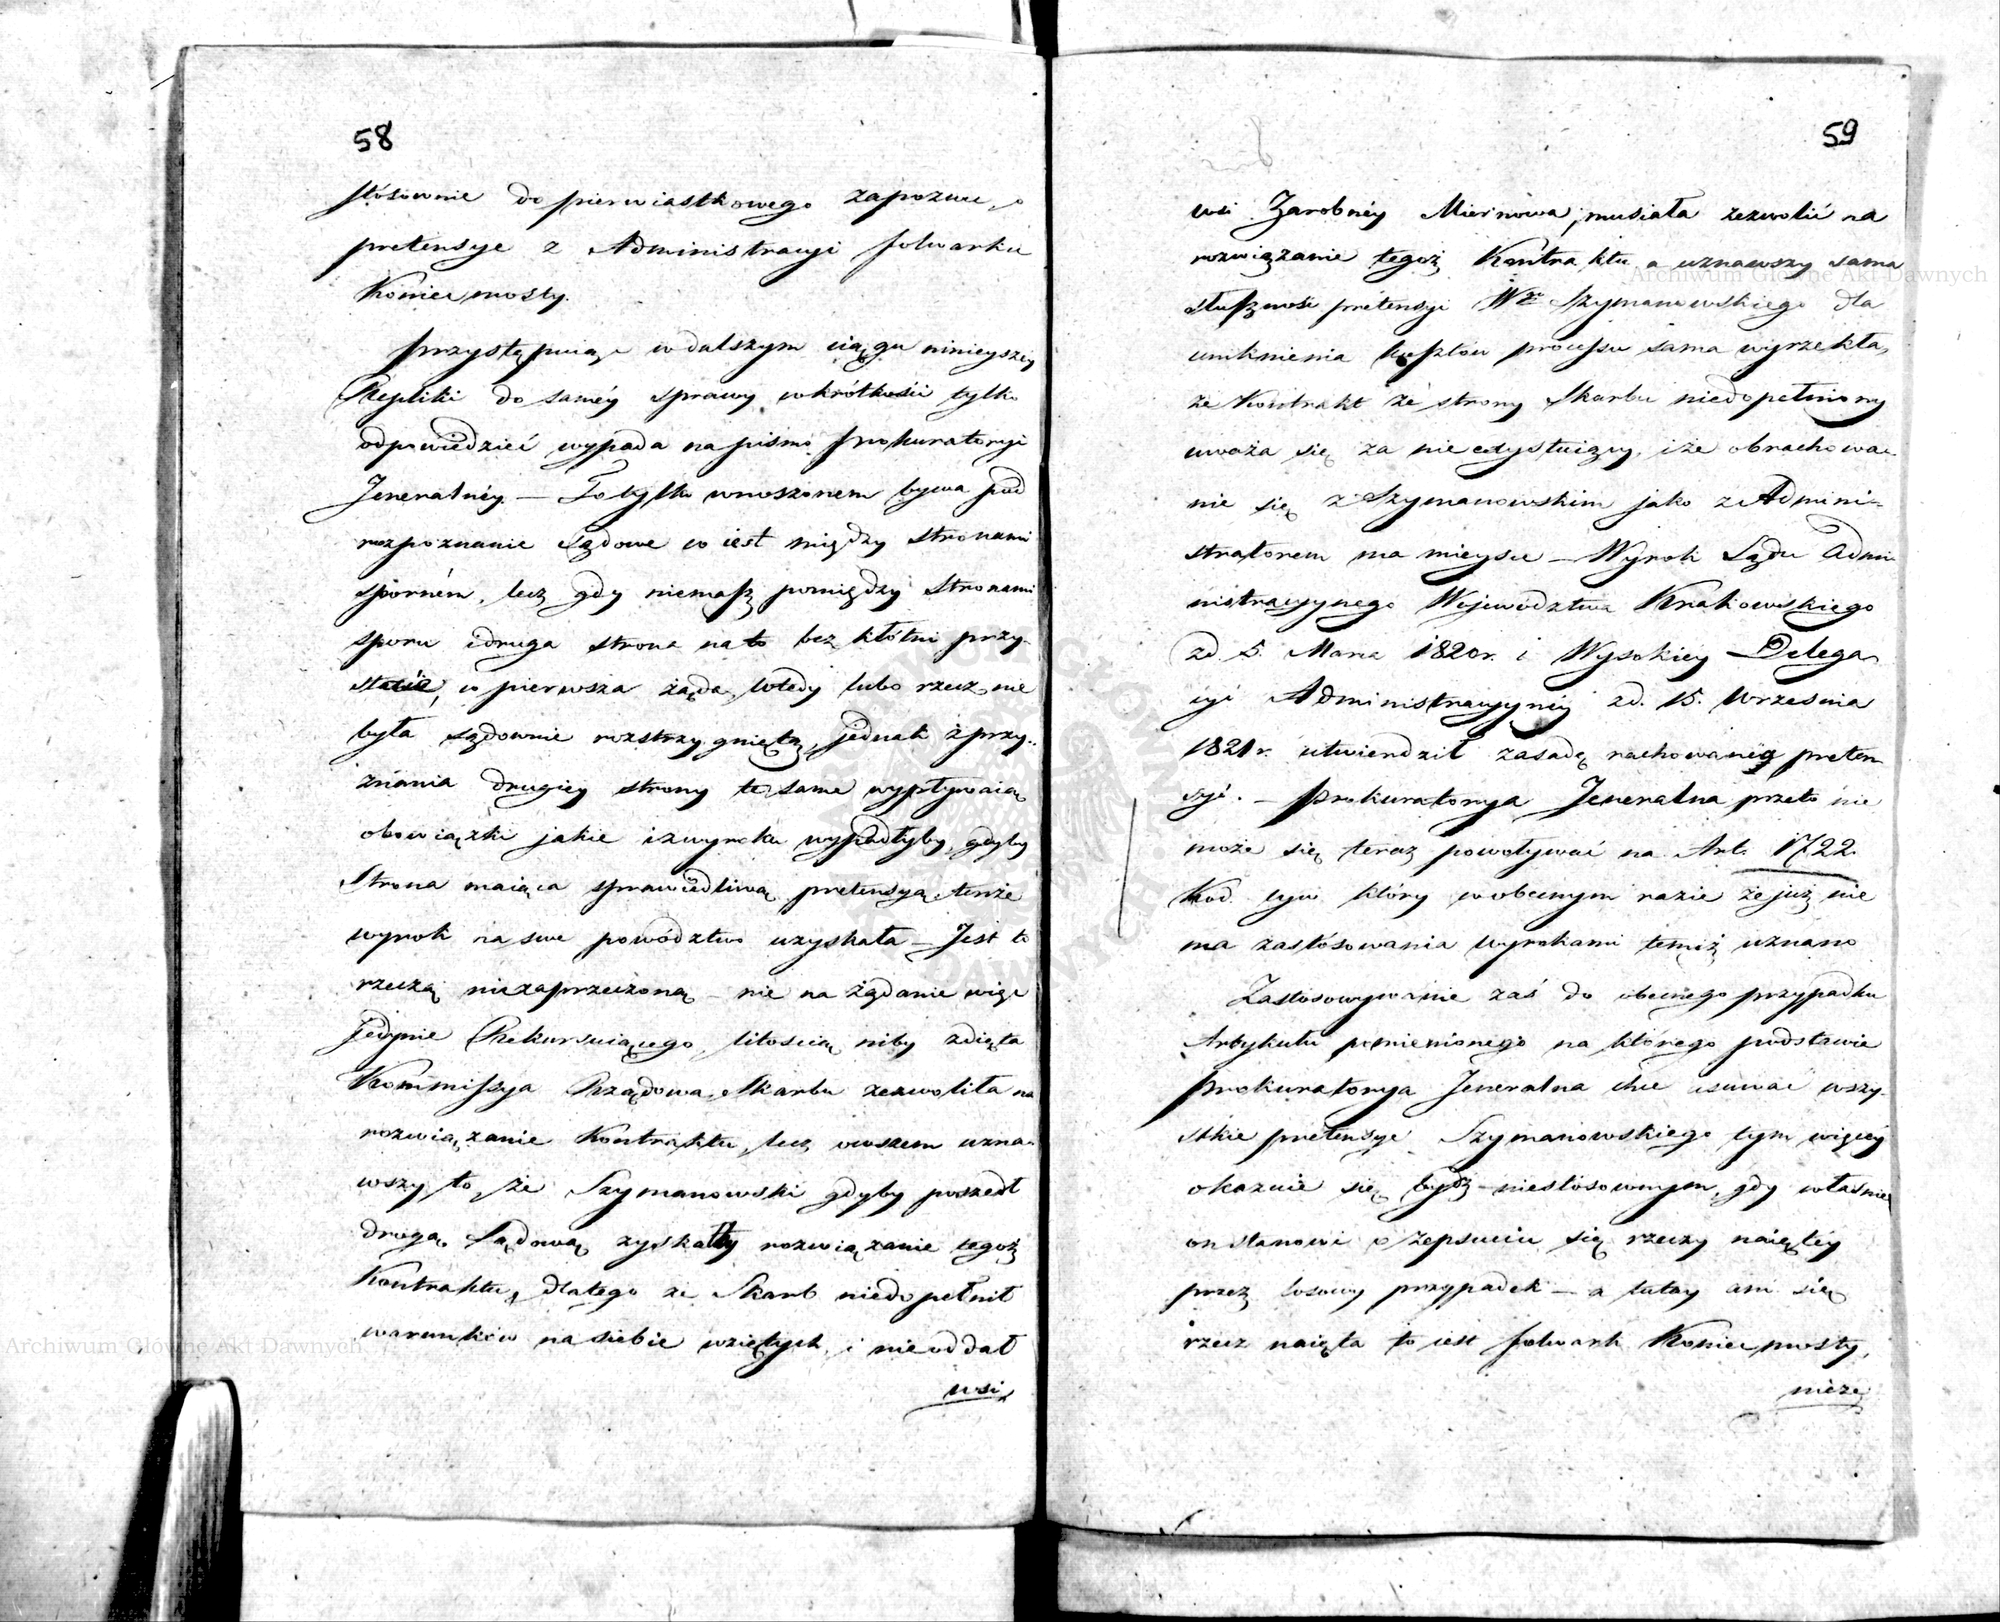 58
stósownie do pierwiastkowego zapozwu, o
pretensye z Administracyi folwarku
Koniecmosty.
Przystępuiąc w dalszym ciągu ninieyszey
Repliki do saméy sprawy w krótkości tylko
odpowiedzieć wypada na pismo Prokuratoryi
Jeneralnéy. — To tylko wnoszonem bywa pod
rozpoznanie Sądowe co iest między stronami
spórném, lecz gdy niemasz pomiędzy Stronami
sporu i druga strona na to bez kłótni przy-
staie, co pierwsza żąda, wtedy lubo rzecz nie
była sądownie rozstrzygniętą, jednak z przy-
znania drugiey strony te same wypływaią
obowiązki jakie i z wyroku wypadłyby, gdyby
Strona maiąca sprawiedliwą pretensyą tenże
wyrok na swe powództwo uzyskała — Jest to
rzeczą niezaprzeczoną — nie na żądanie więc
jedynie Rekursuiącego, litością niby zdięta
Kommissya Rządowa Skarbu zezwoliła na
rozwiązanie Kontraktu, lecz owszem uzna-
wszy to, że Szymanowski gdyby poszedł
drogą Sądową zyskałby rozwiązanie tegoż
Kontraktu, dlatego że Skarb niedopełnił
warunków na siebie wziętych, i nie oddał
wsi
59
wsi Zarobnéy Miernowa, musiała zezwolić na
rozwiązanie tegoż Kontraktu a uznawszy sama
słuszność pretensyi Wgo Szymanowskiego dla
uniknienia kosztów processu sama wyrzekła,
że Kontrakt ze strony Skarbu niedopełniony
uważa się za nieexystuiący, i że obrachowa-
nie się z Szymanowskim jako z Admini-
stratorem ma mieysce — Wyrok Sądu Admi-
nistracyynego Województwa Krakowskiego
zd. 5. Marca 1820r. i Wysokiey Delega-
cyi Administracyyney zd. 15. Września
1821r. utwierdził zasadę rachowania preten-
syi. — Prokuratorya Jeneralna przeto nie
może się teraz powoływać na Art. 1722.
Kod. cyw. który w obecnym razie że już nie
ma zastósowania wyrokami temiż uznano
Zastosowywanie zaś do obecnego przypadku
Artykułu pomienionego na którego podstawie
Prokuratorya Jeneralna chce usuwać wszy-
stkie pretensye Szymanowskiego tym więcéy
okazuie się bydź niestosownym, gdy właśnie
on stanowi o zepsuciu się rzeczy naiętéy
przez losowy przypadek — a tutay ani się
rzecz naięta to iest folwark Koniecmosty,